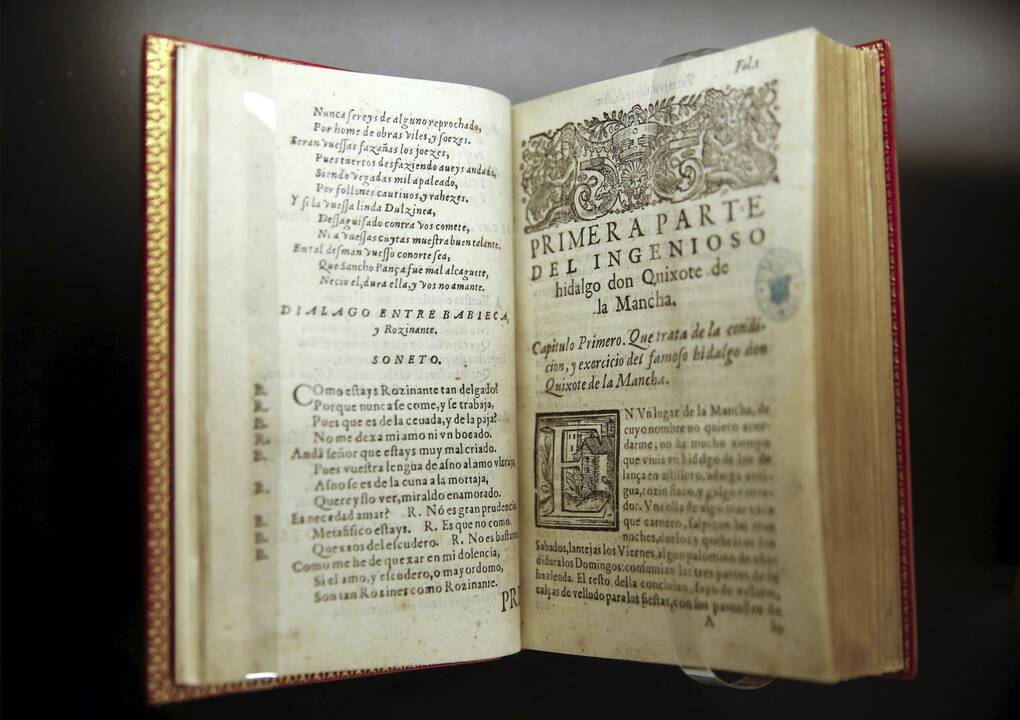 Nunca sereys de alguno reprochado,
Por home de obras viles, y soezes.
Seran vuessas fazañas los joezes,
Pues tuertos desfaziendo aueys andado,
Siendo vegadas mil apaleado,
Por follones cautiuos, y rahezes.
Y si la vuessa linda Dulzinea,
Desaguisado contra vos comete,
Ni a vuessas cuytas muestra buen talante.
En tal desman vuesso conorte sea,
Que Sancho Pança fue mal alcaguete,
Necio el, dura ella, y vos no amante.
DIALAGO ENTRE BABIECA,
y Rozinante.
SONETO.
B. COmo estays Rozinante tan delgado?
R. Porque nunca se come, y se trabaja,
B. Pues que es de la ceuada, y de la paja?
R. No me dexa mi amo ni vn bocado.
B. Andà señor que estays muy mal criado.
Pues vuestra lengua de asno al amo vltraja,
R. Asno se es de la cuna a la mortaja,
Quereyslo ver, miraldo enamorado.
B. Es necedad amar? R. Nó es gran prudencia
B. Metafisico estays. R. Es que no como.
B. Quexaos del escudero. R. No es bastan
Como me he de quexar en mi dolencia,
Si el amo, y escudero, o mayordomo,
Son tan Rozines como Rozinante.
PRI
Fol. 1
PRIMERA PARTE
DEL INGENIOSO
hidalgo don Quixote de
la Mancha.
Capitulo Primero. Que trata de la condi-
cion, y exercicio del famoso hidalgo don
Quixote de la Mancha.
EN Vn lugar de la Mancha, de
cuyo nombre no quiero acor-
darme, no ha mucho tiempo
que viuia vn hidalgo de los de
lança en astillero, adarga anti-
gua, rozin flaco, y galgo corre-
dor. Vna olla de algo mas vaca
que carnero, salpicon las mas
noches, duelos y quebrãtos los
Sabados, lantejas los Viernes, algun palomino de aña-
didura los Domingos: consumian las tres partes de su
hazienda. El resto della concluian, sayo de velarte,
calças de velludo para las fiestas, con sus pantuflos de
A